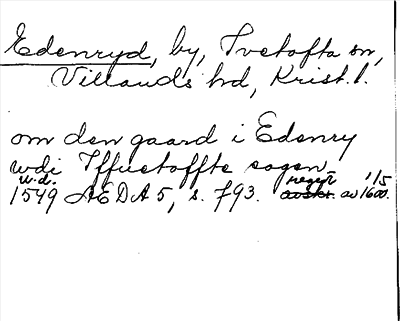 Edenryd, by, Ivetofta sn,
Villands hd, Krist. l.
om den gaard i Edenry
wdi Iffuetoffte sogen
u.d. regest 1/5
1549 ÆDA 5, s. 793. avskr. av 1600.